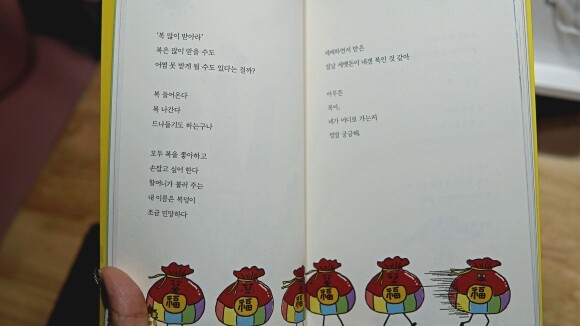 '복 많이 받아라'
복은 많이 받을 수도
어쩜 못 받게 될 수도 있다는 걸까?
복 들어온다
복 나간다
드나들기도 하는구나
모두 복을 좋아하고
손잡고 싶어 한다
할머니가 불러 주는
내 이름은 복덩이
조금 민망하다
세배하면서 받은
설날 세뱃돈이 내겐 복인 것 같아
아무튼
복아,
네가 어디로 가는지
정말 궁금해.
福
福
福
福